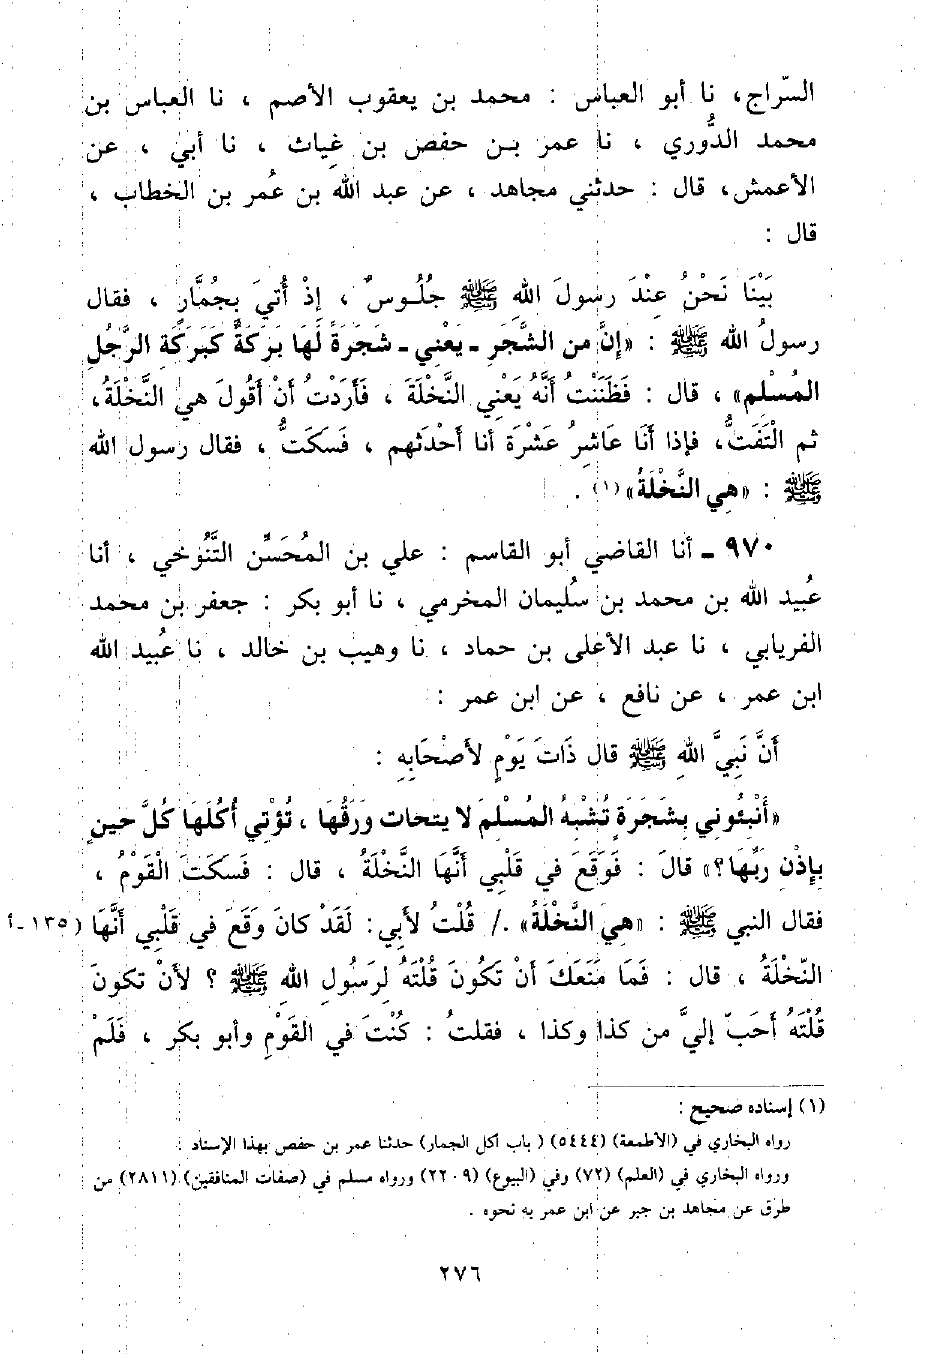 السّراج، نا أبو العباس : محمد بن يعقوب الأصم ، نا العباس بن
محمد الدُّوري ، نا عمر بـن حفص بن غياث ، نا أبي ، عن
الأعمش، قال : حدثني مجاهد ، عن عبد الله بن عُمر بن الخطاب ،
قال :
بَيْنَا نَحْنُ عِنْدَ رسولَ اللهِ ﷺ جُلُـوسٌ ، إِذْ أُتيَ بِجُمَّارٍ ، فقال
رسولُ الله ﷺ : «إنَّ من الشَّجَرِ ـ يَعْنِي ـ شَجَرَةً لَهَا بَرَكَةٌ كَبَرَكَةِ الرَّجُلِ
المُسْلمِ» ، قال : فَظَنَنْتُ أَنَّهُ يَعْنِي النَّخْلَةَ ، فَأَرَدْتُ أَنْ أَقُولَ هيَ النَّخْلَةُ،
ثم الْتَفَتُّ، فإذا أَنَا عَاشِرُ عَشْرَة أنا أَحْدَثهم ، فَسكَتُّ ، فقال رسول الله
ﷺ : «هِي النَّخْلَةُ» (١) .
٩٧٠ ـ أنا القاضي أبو القاسم : علي بن المُحَسِّن التَّنُوخي ، أنا
عبُيد الله بن محمد بن سُليمان المخرمي ، نا أبو بكر : جعفر بن محمد
الفريابي ، نا عبد الأعلى بن حماد ، نا وهيب بن خالد ، نا عُبيد الله
ابن عمر ، عن نافع ، عن ابن عمر :
أَنَّ نَبِيَّ اللهِ ﷺ قال ذَاتَ يَوْمٍ لأَصْحَابِهِ :
«أَنْبِئُوني بِشَجَرَةٍ تُشْبهُ المُسْلمَ لا يتحات ورَقُهَا ، تُؤْتي أُكُلَهَا كُلَّ حينٍ
بإِذْنِ رَبِّهَا؟» قالَ : فَوَقَعَ في قَلْبِي أَنَّهَا النَّخْلَةُ ، قال : فَسكَتَ الْقَوْمُ ،
فقال النبي ﷺ : «هيَ النَّخْلَةُ» ./ قُلْتُ لأَبِي: لَقَدْ كانَ وَقَعَ في قَلْبِي أَنَّهَا (١٣٥ـأ
النّخْلَةُ ، قال : فَمَا مَنَعَكَ أَنْ تَكُونَ قُلْتَهُ لِرَسُولِ اللهِ ﷺ ؟ لأَنْ تكونَ
قُلْتَهُ أَحَبّ إليَّ من كذا وكذا ، فقلتُ : كُنْتَ في القَوْمِ وأبو بكر ، فَلَمْ
(١) إسناده صحيح :
رواه البخاري في (الأطعمة) (٥٤٤٤) ( باب أكل الجمار) حدثنا عمر بن حفص بهذا الإسناد .
ورواه البخاري في (العلم) (٧٢) وفي (البيوع) (٢٢٠٩) ورواه مسلم في (صفات المنافقين) (٢٨١١) من
طرق عن مجاهد بن جبر عن ابن عمر به نحوه .
٢٧٦